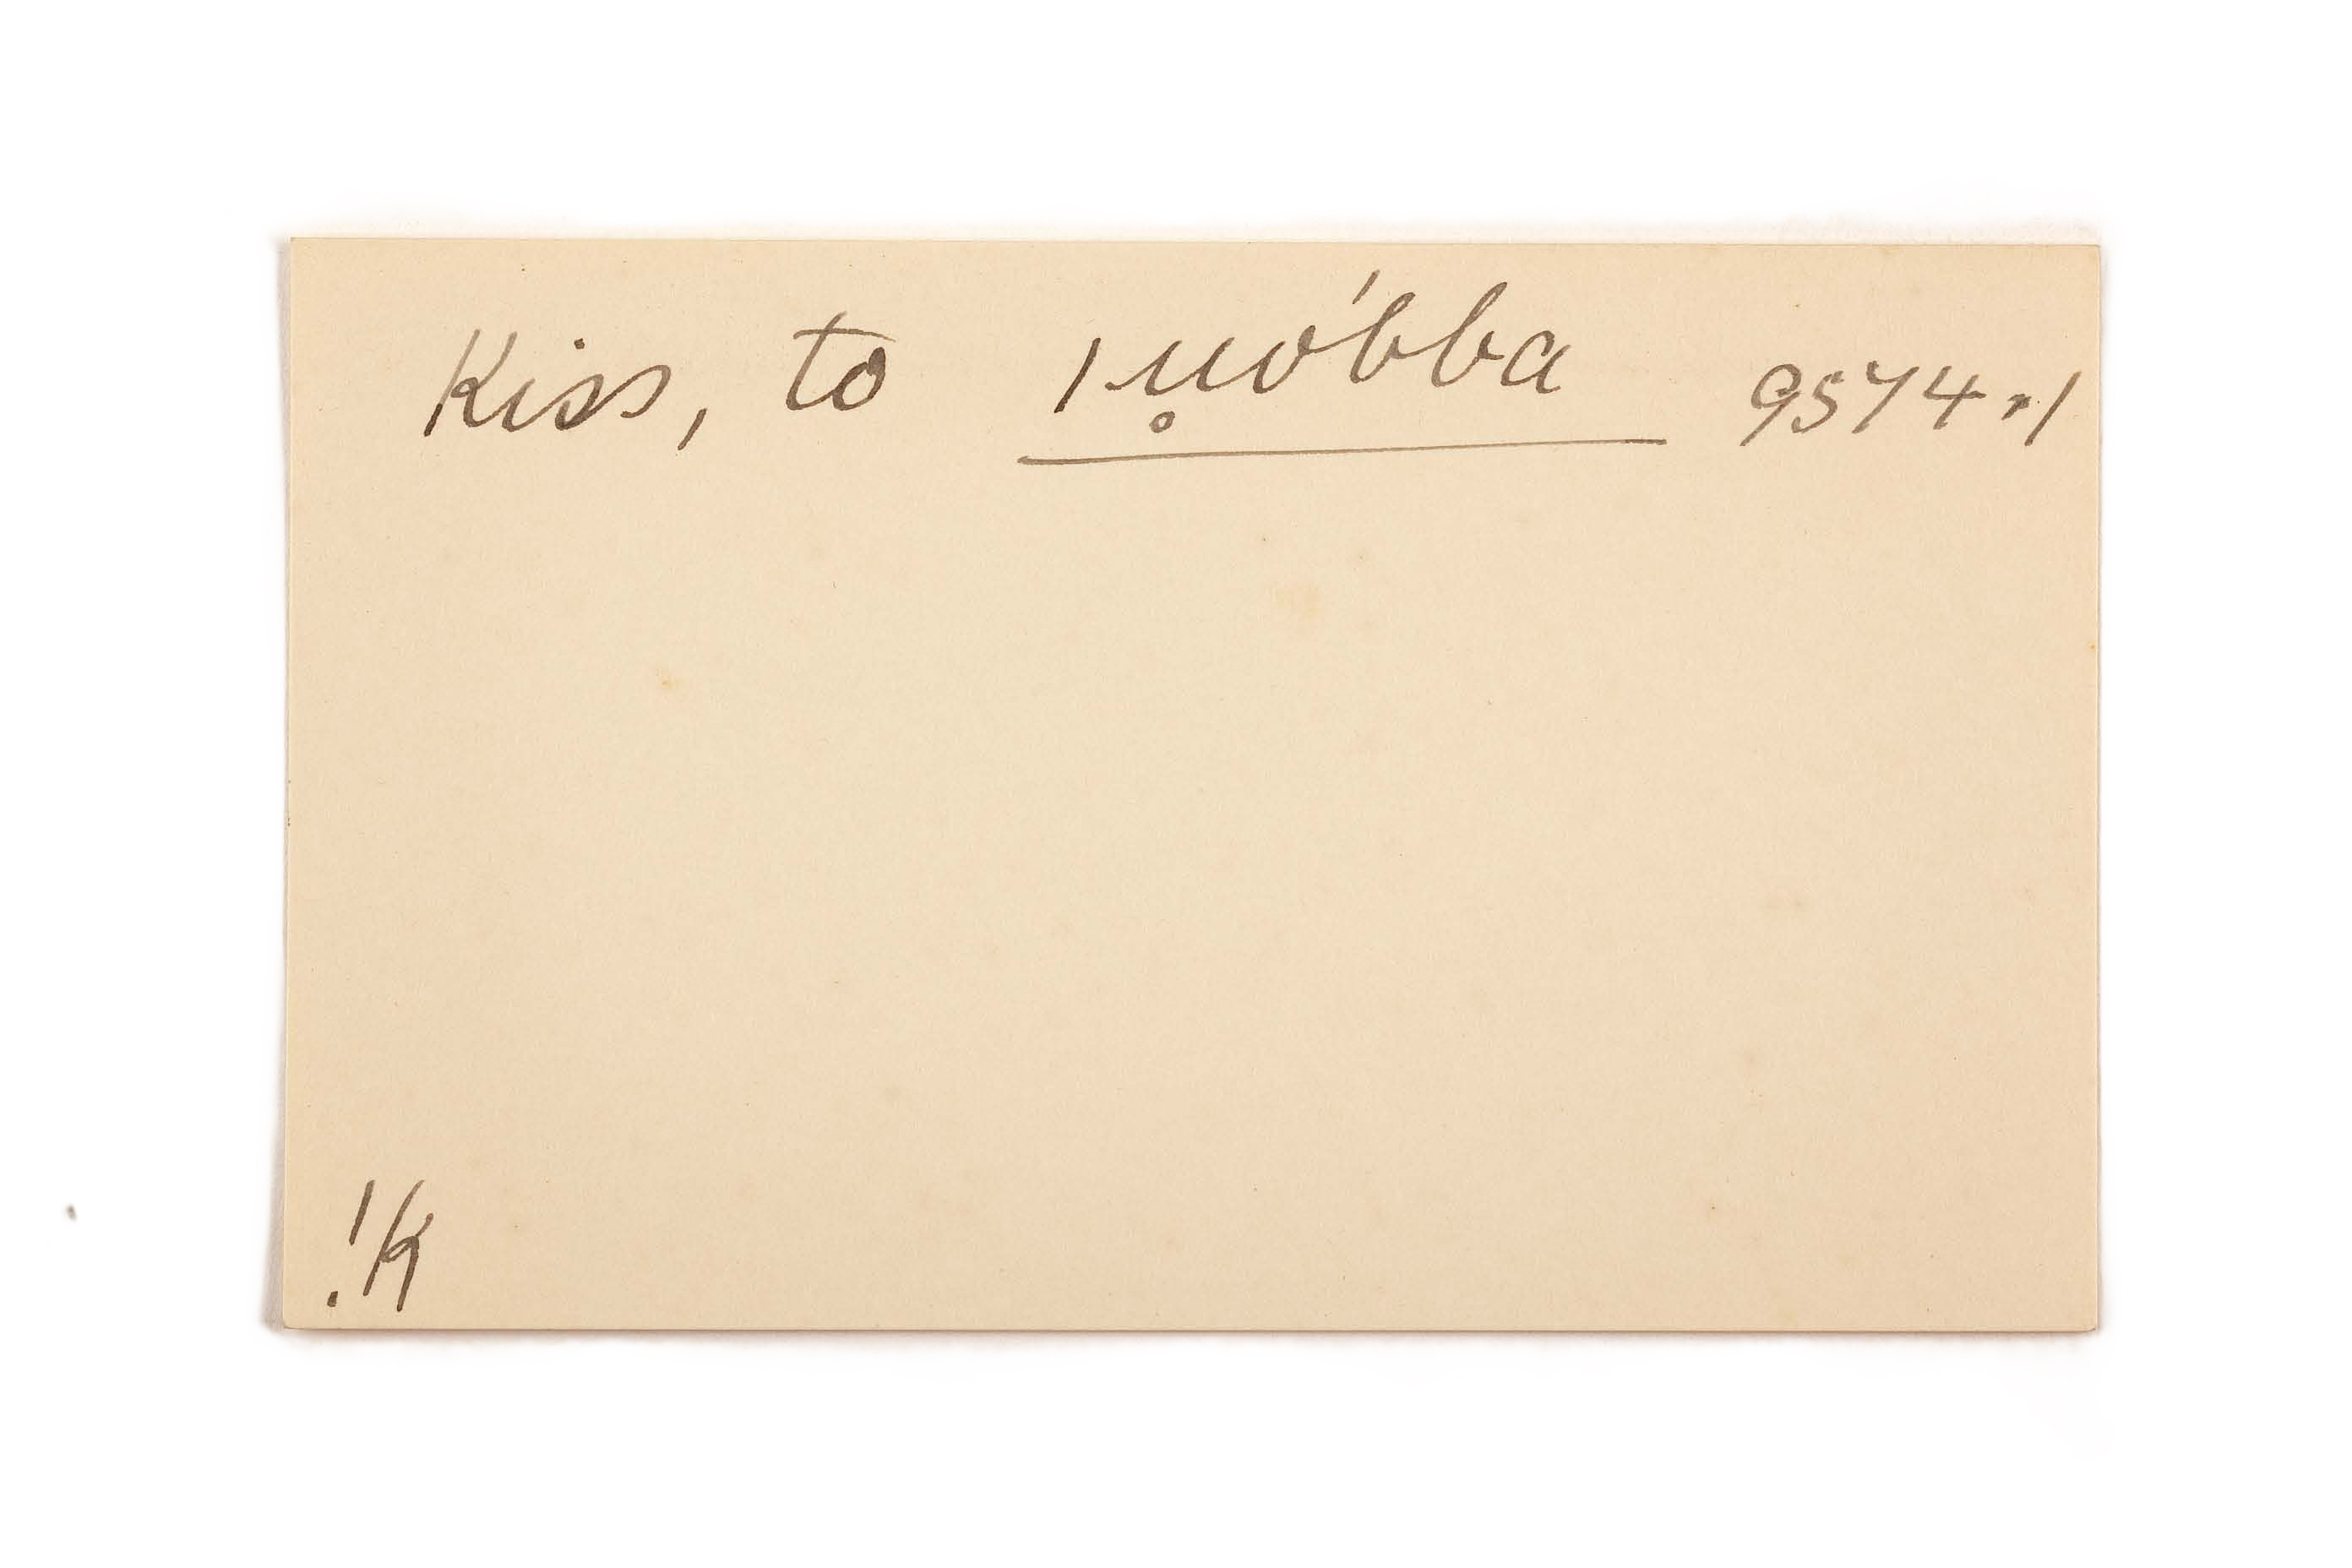 Kiss, to ǀnu̥óbba 9574.,1
!k